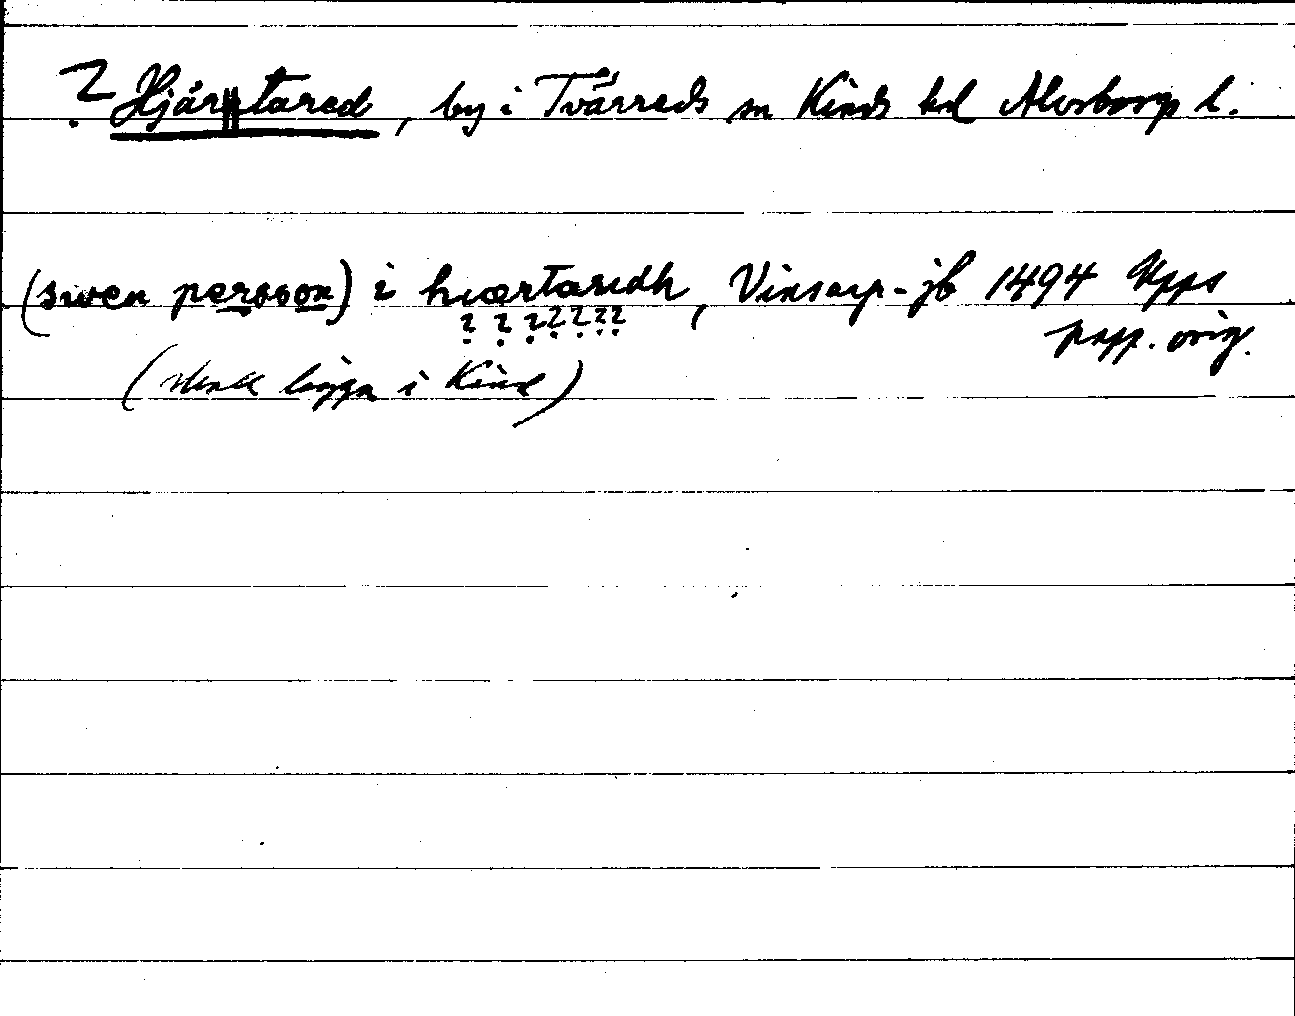 ? Hjärtared, by i Tvärreds sn Kinds hd Älvsborgs l.
(swen persson) i hiærtaridh, Vinsarp-jb 1494 Upps
? ? ? ? ? ? ? papp. orig.
(skall ligga i Kind)